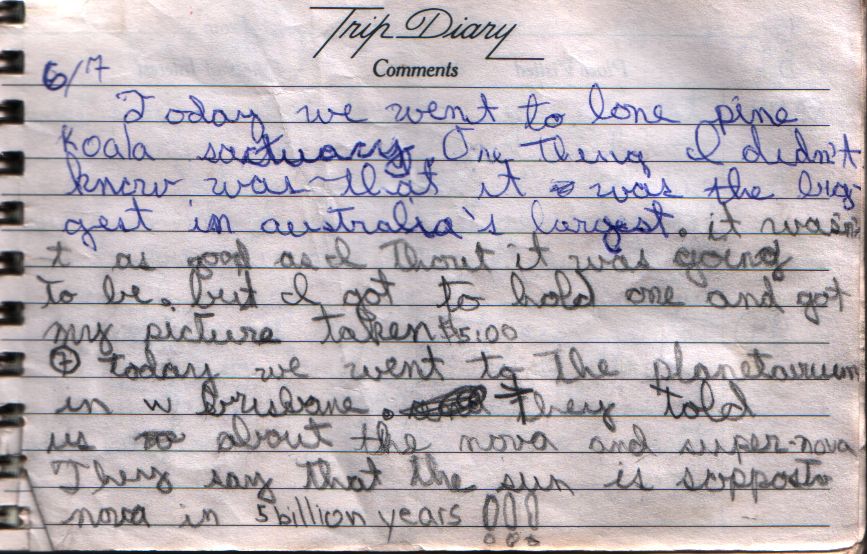 Trip Diary
Comments
6/7
Today we went to lone pine
Koala sactuary. One thing I didn't
know was that it was the big
gest in australia's largest. it wasn'
t as good as I thout it was going
to be. but I got to hold one and got
my picture taken $5:00
7 today we went to the planetarium
in w brisbane. They told
us about the nova and super-nova
They say that the sun is suppost
nova in 5 billion years !!!